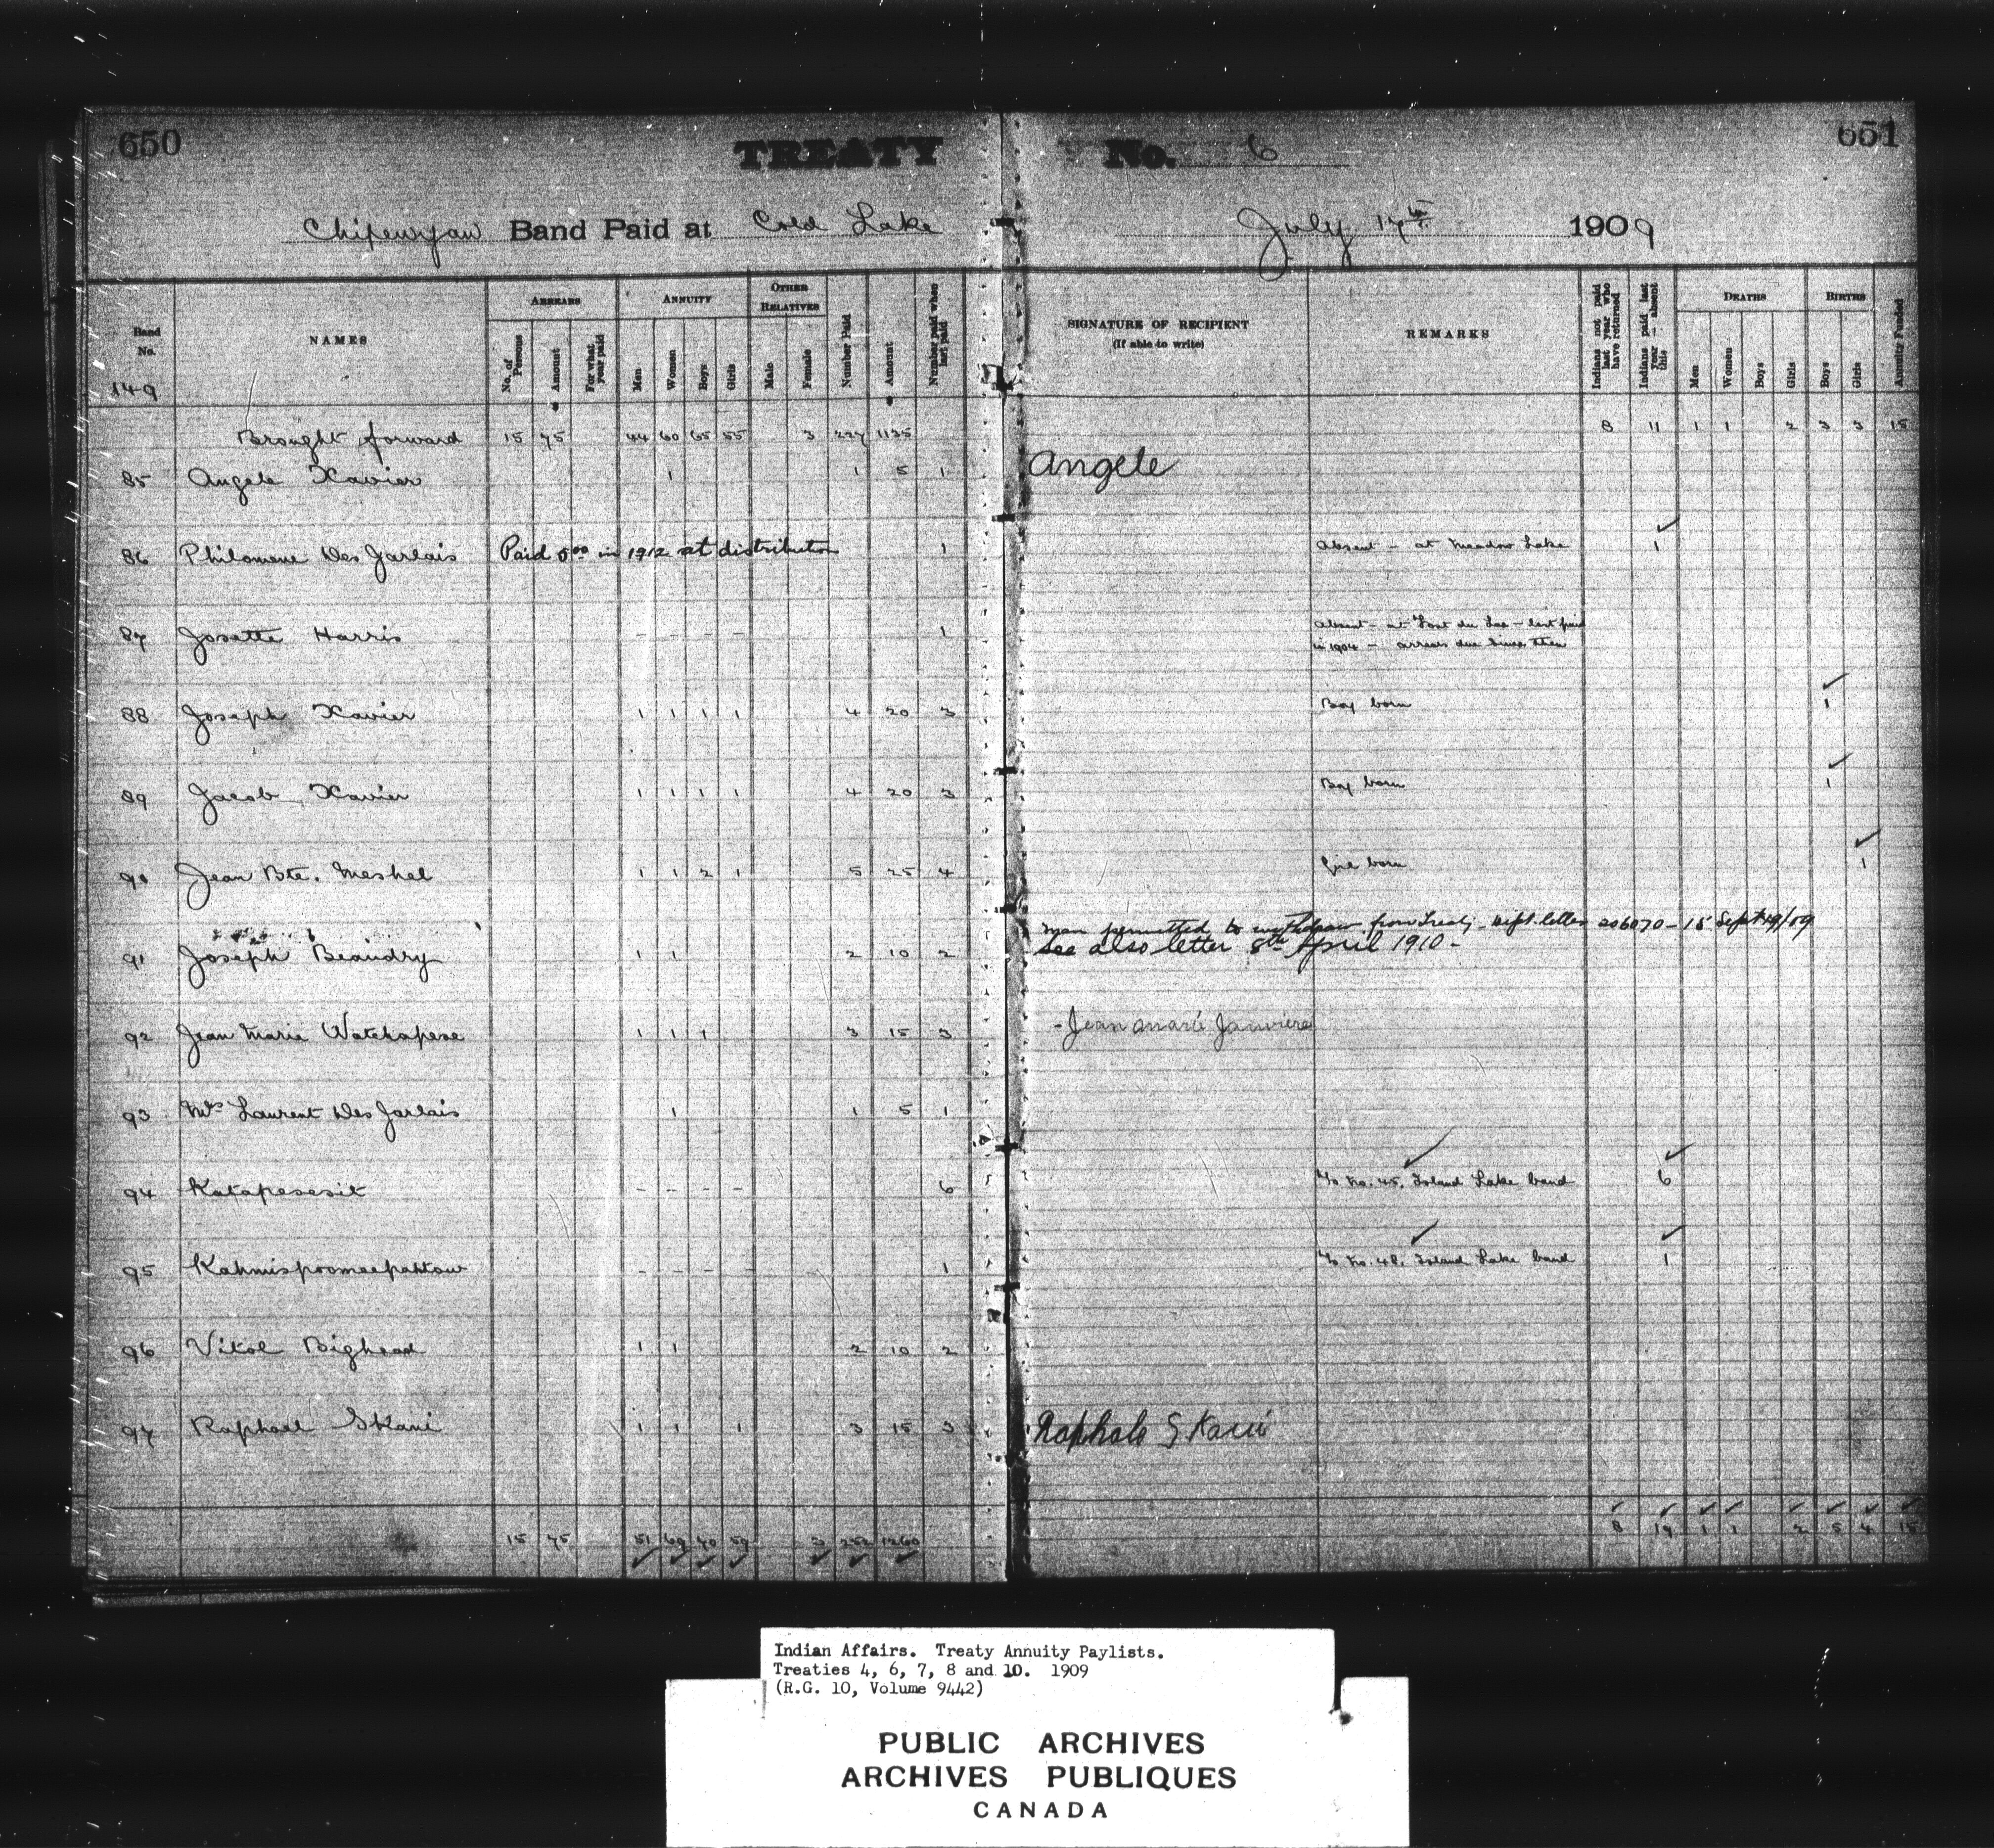 650
TREATY No. 6
651
Chipewyan Band Paid at Cold Lake July 17th 1909
Band No.
149
NAMES
ARREARS
No. of Persons
Amount
For what year paid
ANNUITY
Men
Women
Boys
Girls
OTHER RELATIVES
Male
Female
Number Paid
Amount
Number paid when last paid
SIGNATURE OF RECIPIENT
(If able to write)
REMARKS
Indians not paid last year who have returned
Indians paid last year – absent this
DEATHS
Men
Women
Boys
Girls
BIRTHS
Boys
Girls
Annuity Funded
Brought forward 15 75 44 60 65 55 3 227 1135 8 11 1 1 2 3 3 15
85 Angele Xavier 1 1 5 1 Angele
86 Philomene Des Jarlais Paid 5 00 in 1912 at distribution 1 Absent – at Meadow Lake 1
87 Josette Harris - - - - 1 Absent – at Fond du Lac – last paid
in 1904 – arrears due since then
88 Joseph Xavier 1 1 1 1 4 20 3 Boy born 1
89 Jacob Xavier 1 1 1 1 4 20 3 Boy born 1
90 Jean Bte. Meshel 1 1 2 1 5 25 4 Girl born 1
Man permitted to withdraw from Treaty – Dept. letter 206070 – 15 Sept 19/09
91 Joseph Beaudry 1 1 2 10 2 See also letter 8th April 1910 –
92 Jean Marie Watchapese 1 1 1 3 15 3 - Jean Marie Janviere
93 Mrs Laurent Des Jarlais 1 1 5 1
94 Katapesesit - - - - 6 No. 45. Island Lake band 6
95 Kahmispoomeepahtow - - - - 1 No. 48. Island Lake band 1
96 Vitol Bighead 1 1 2 10 2
97 Raphael Skani 1 1 1 3 15 3 Raphale Skani
15 75 51 69 70 59 3 252 1260 8 19 1 1 2 5 4 15
Indian Affairs. Treaty Annuity Paylists.
Treaties 4, 6, 7, 8 and 10. 1909
(R.G. 10, Volume 9442)
PUBLIC ARCHIVES
ARCHIVES PUBLIQUES
CANADA